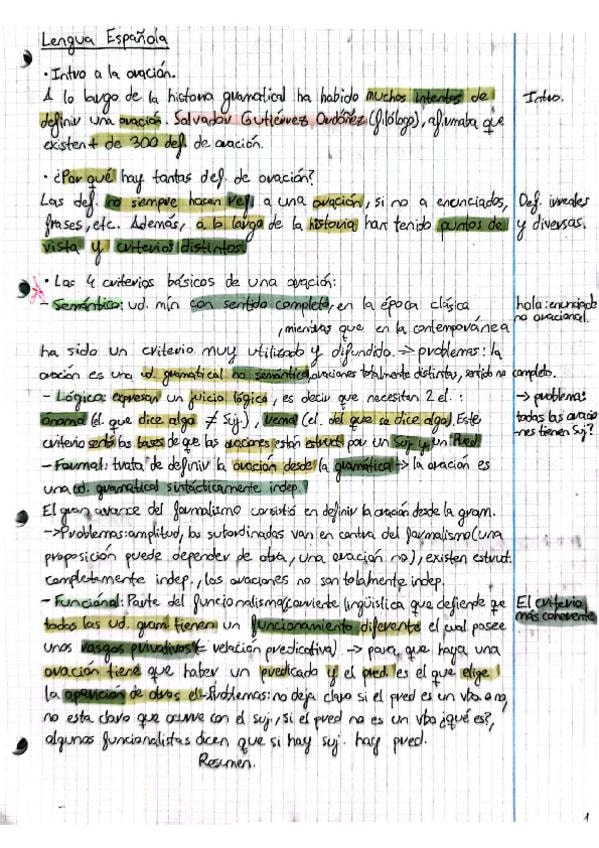 Lengua Española
· Intro a la oración.
A lo largo de la historia gramatical ha habido muchos intentos de
definir una oración. Salvador Gutiérrez Ordóñez (filólogo), afirmaba que
existen + de 300 def. de oración.
Intro.
· ¿Por qué hay tantas def. de oración?
Las def. no siempre hacen ref. a una oración, si no a enunciados,
frases, etc. Además, a lo largo de la historia han tenido puntos de
vista y criterios distintos
Def. irreales
y diversas.
· Los 4 criterios básicos de una oración:
- Semántico: ud. mín con sentido completo, en la época clásica
, mientras que en la contemporánea
ha sido un criterio muy utilizado y difundido. → problemas: la
oración es una ud. gramatical no semántica, oraciones totalmente distintas, sentido no completo.
hola: enunciado
no oracional.
- Lógica: expresan un juicio lógico, es decir que necesitan 2 el. :
ónoma (el que dice algo ≠ Suj.), rema (el. del que se dice algo). Este
criterio sentó las bases de que las oraciones están estruct. por un Suj y un Pred.
→ problema:
todas las oracio
-nes tienen Suj?
- Formal: trata de definir la oración desde la gramática → la oración es
una ud. gramatical sintácticamente indep.
El gran avance del formalismo consistió en definir la oración desde la gram.
→ Problemas: amplitud, las subordinadas van en contra del formalismo (una
proposición puede depender de otra, una oración no), existen estruct.
completamente indep., las oraciones no son totalmente indep.
- Funcional: Parte del funcionalismo (corriente lingüística que defiende qe
todas las ud. gram tienen un funcionamiento diferente el cual posee
unos rasgos privativos (= relación predicativa). → para que haya una
oración tiene que haber un predicado y el pred. es el que elige
la aparición de otros el. - Problemas: no deja claro si el pred es un vbo. o no,
no esta claro que ocurre con el suj., si el pred no es un vbo ¿qué es?,
algunos funcionalistas dicen que si hay suj. hay pred.
El criterio
más coherente
Resumen.
1